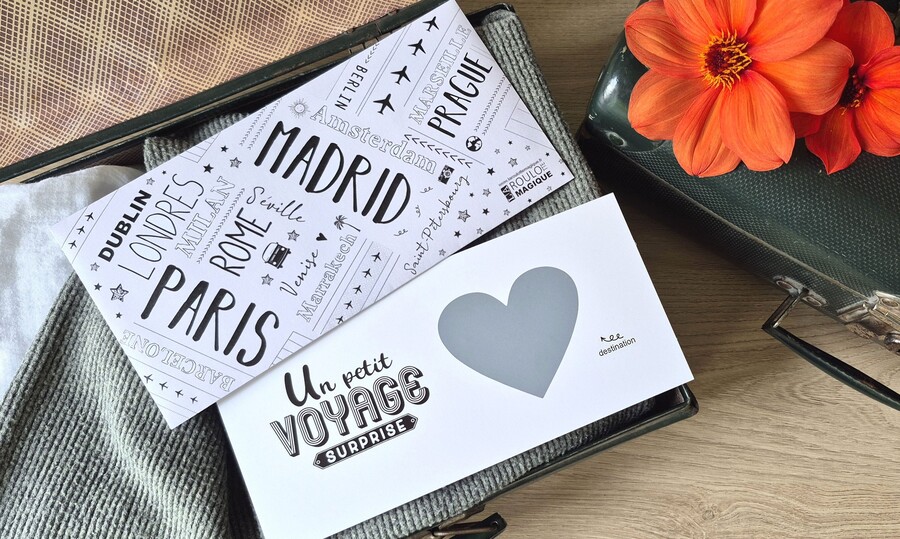 BERLIN
MARSEILLE
PRAGUE
Amsterdam
MADRID
DUBLIN
LONDRES
MILAN
ROME
Séville
Venise
Marrakech
Saint-Pétersbourg
ROULOTTE
MAGIQUE
PARIS
BARCELONE
Un petit
VOYAGE
SURPRISE
destination